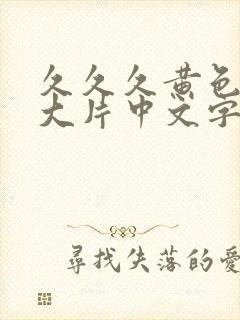 久久久黄色
大片中文字
尋找失落的愛